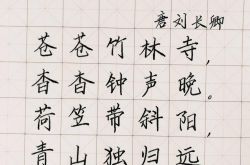 唐刘长卿
苍苍竹林寺，
杳杳钟声晚。
荷笠带斜阳，
青山独归远